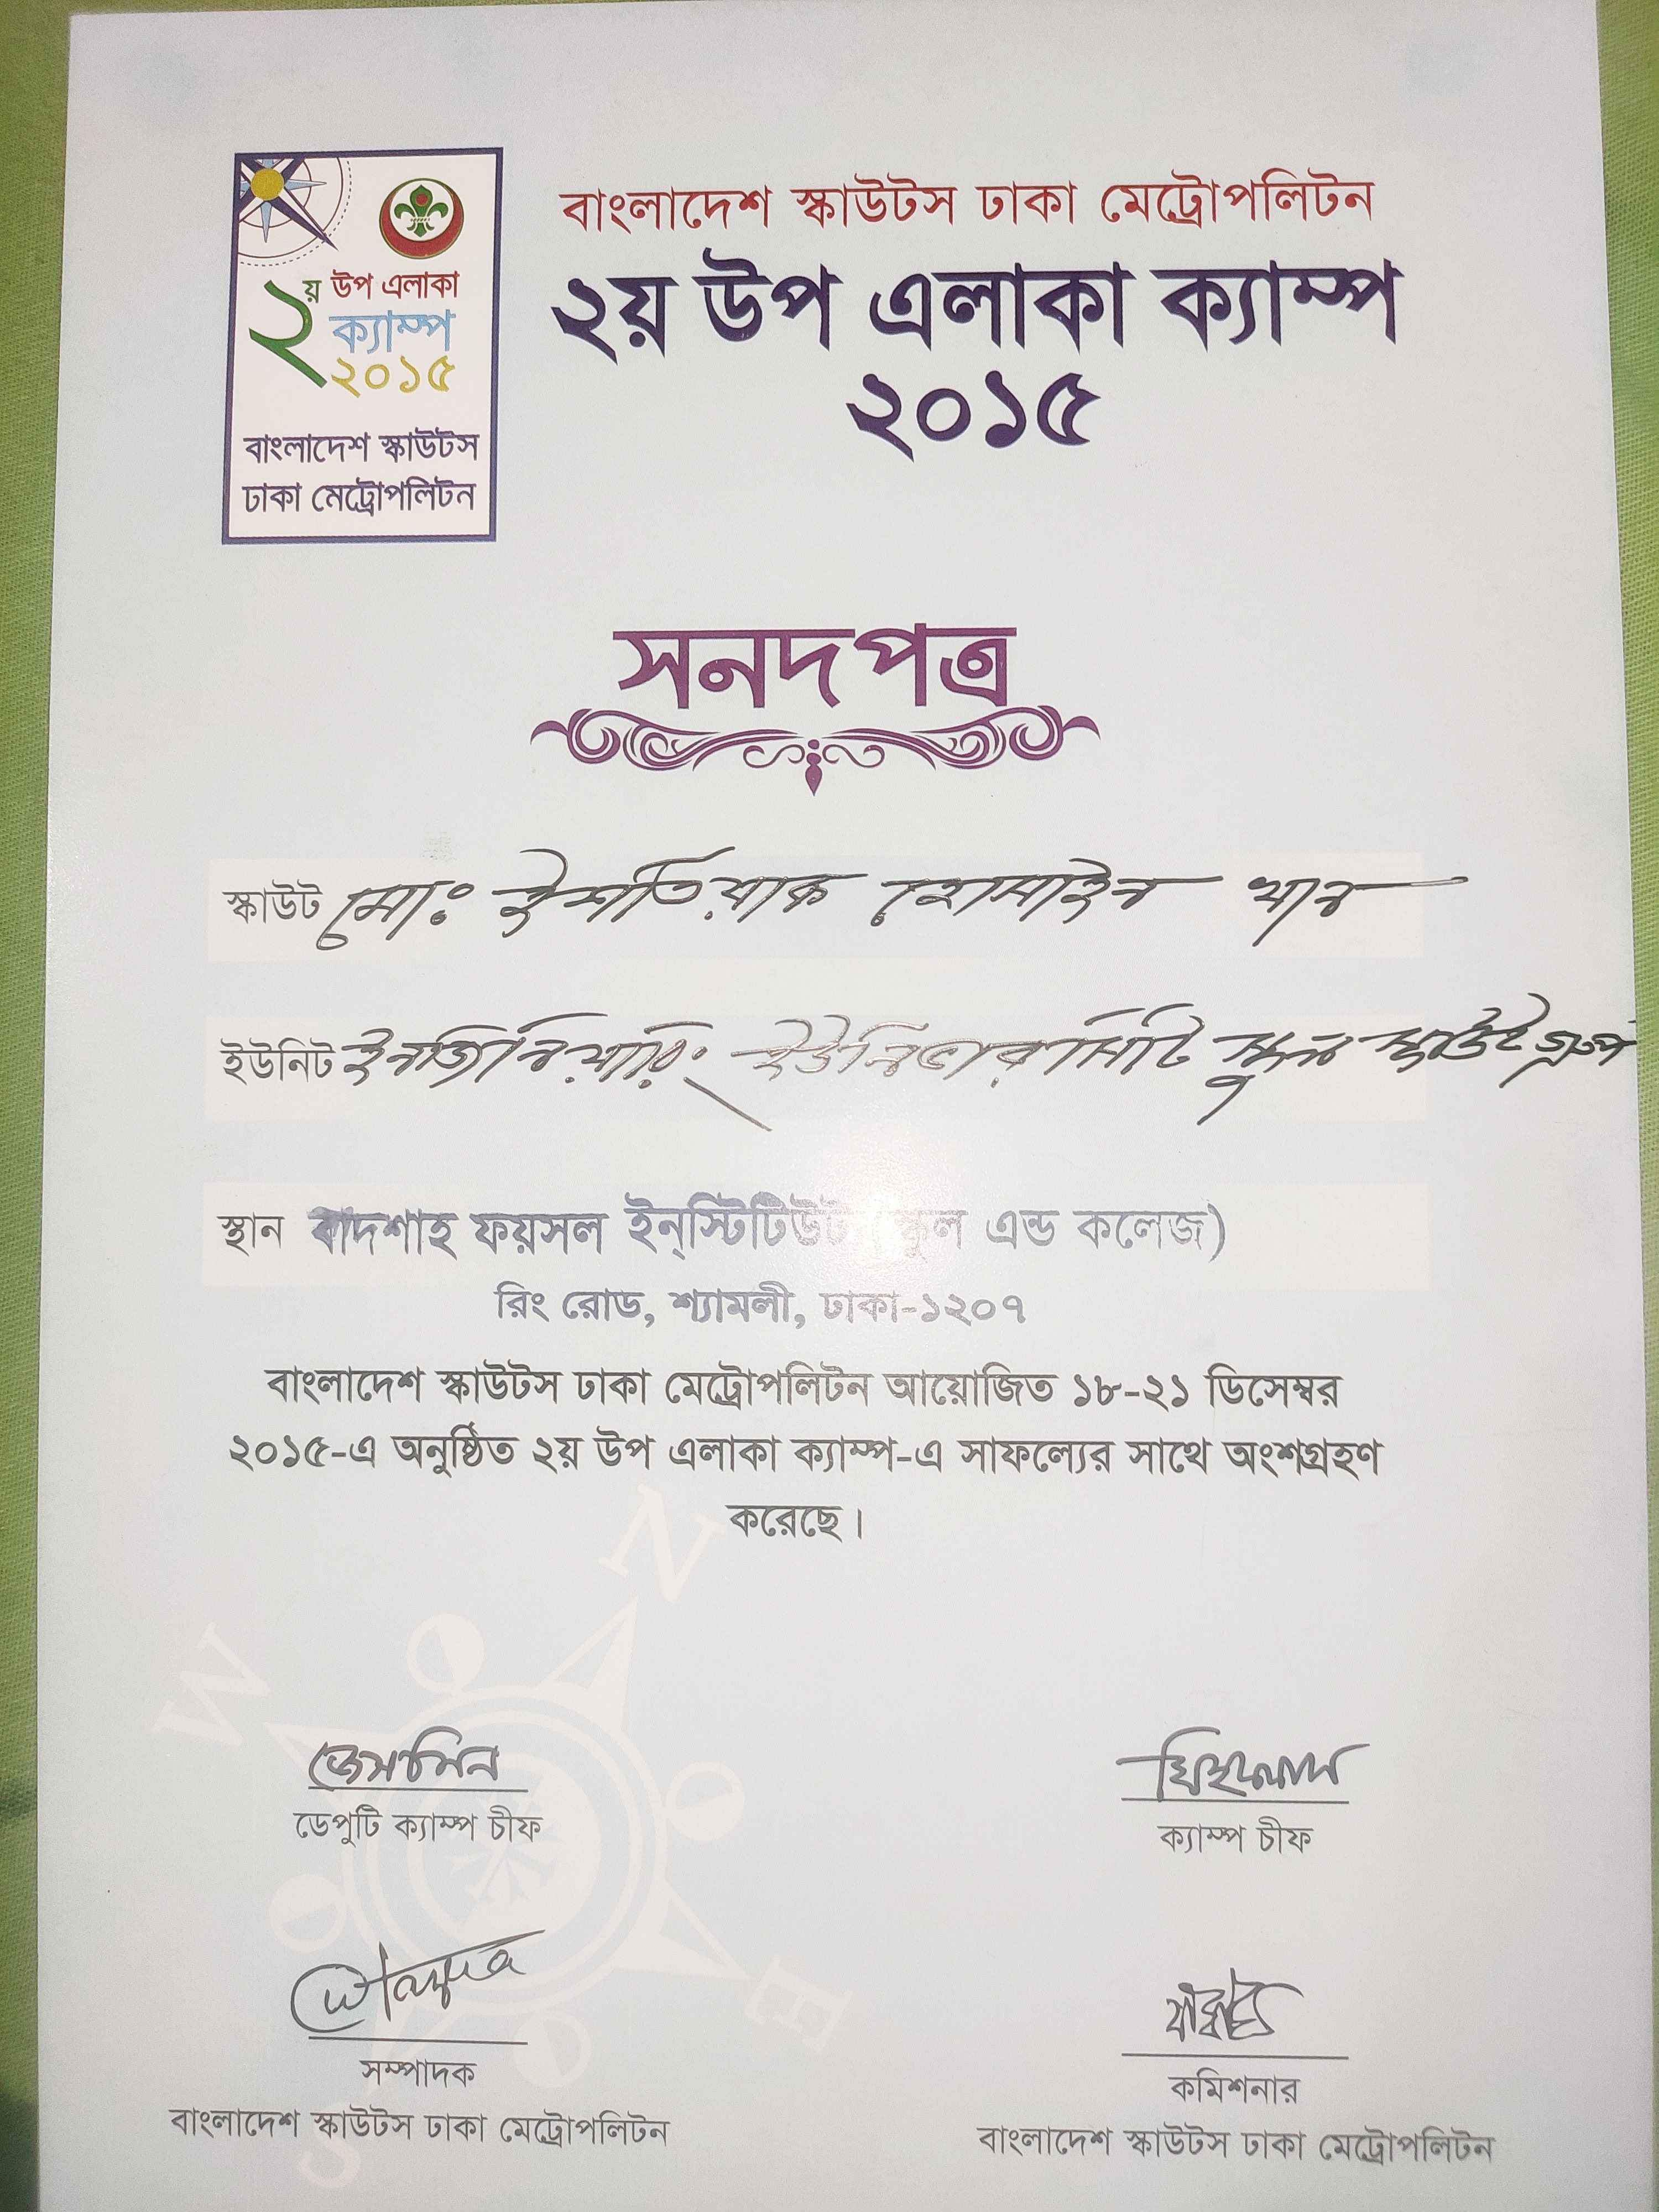 ২য় উপ এলাকা
ক্যাম্প
২০১৫
বাংলাদেশ স্কাউটস
ঢাকা মেট্রোপলিটন
বাংলাদেশ স্কাউটস ঢাকা মেট্রোপলিটন
২য় উপ এলাকা ক্যাম্প
২০১৫
সনদপত্র
স্কাউট মোঃ ইশতিয়াক হোসাইন খান
ইউনিট ইনজিনিয়ারিং ইউনিভারসিটি স্কুল স্কাউট গ্রুপ
স্থান বাদশাহ ফয়সল ইন্‌স্টিটিউট (স্কুল এন্ড কলেজ)
রিং রোড, শ্যামলী, ঢাকা-১২০৭
বাংলাদেশ স্কাউটস ঢাকা মেট্রোপলিটন আয়োজিত ১৮-২১ ডিসেম্বর
২০১৫-এ অনুষ্ঠিত ২য় উপ এলাকা ক্যাম্প-এ সাফল্যের সাথে অংশগ্রহণ
করেছে।
N
W
E
জেসমিন
ডেপুটি ক্যাম্প চীফ
ক্যাম্প চীফ
সম্পাদক
বাংলাদেশ স্কাউটস ঢাকা মেট্রোপলিটন
কমিশনার
বাংলাদেশ স্কাউটস ঢাকা মেট্রোপলিটন